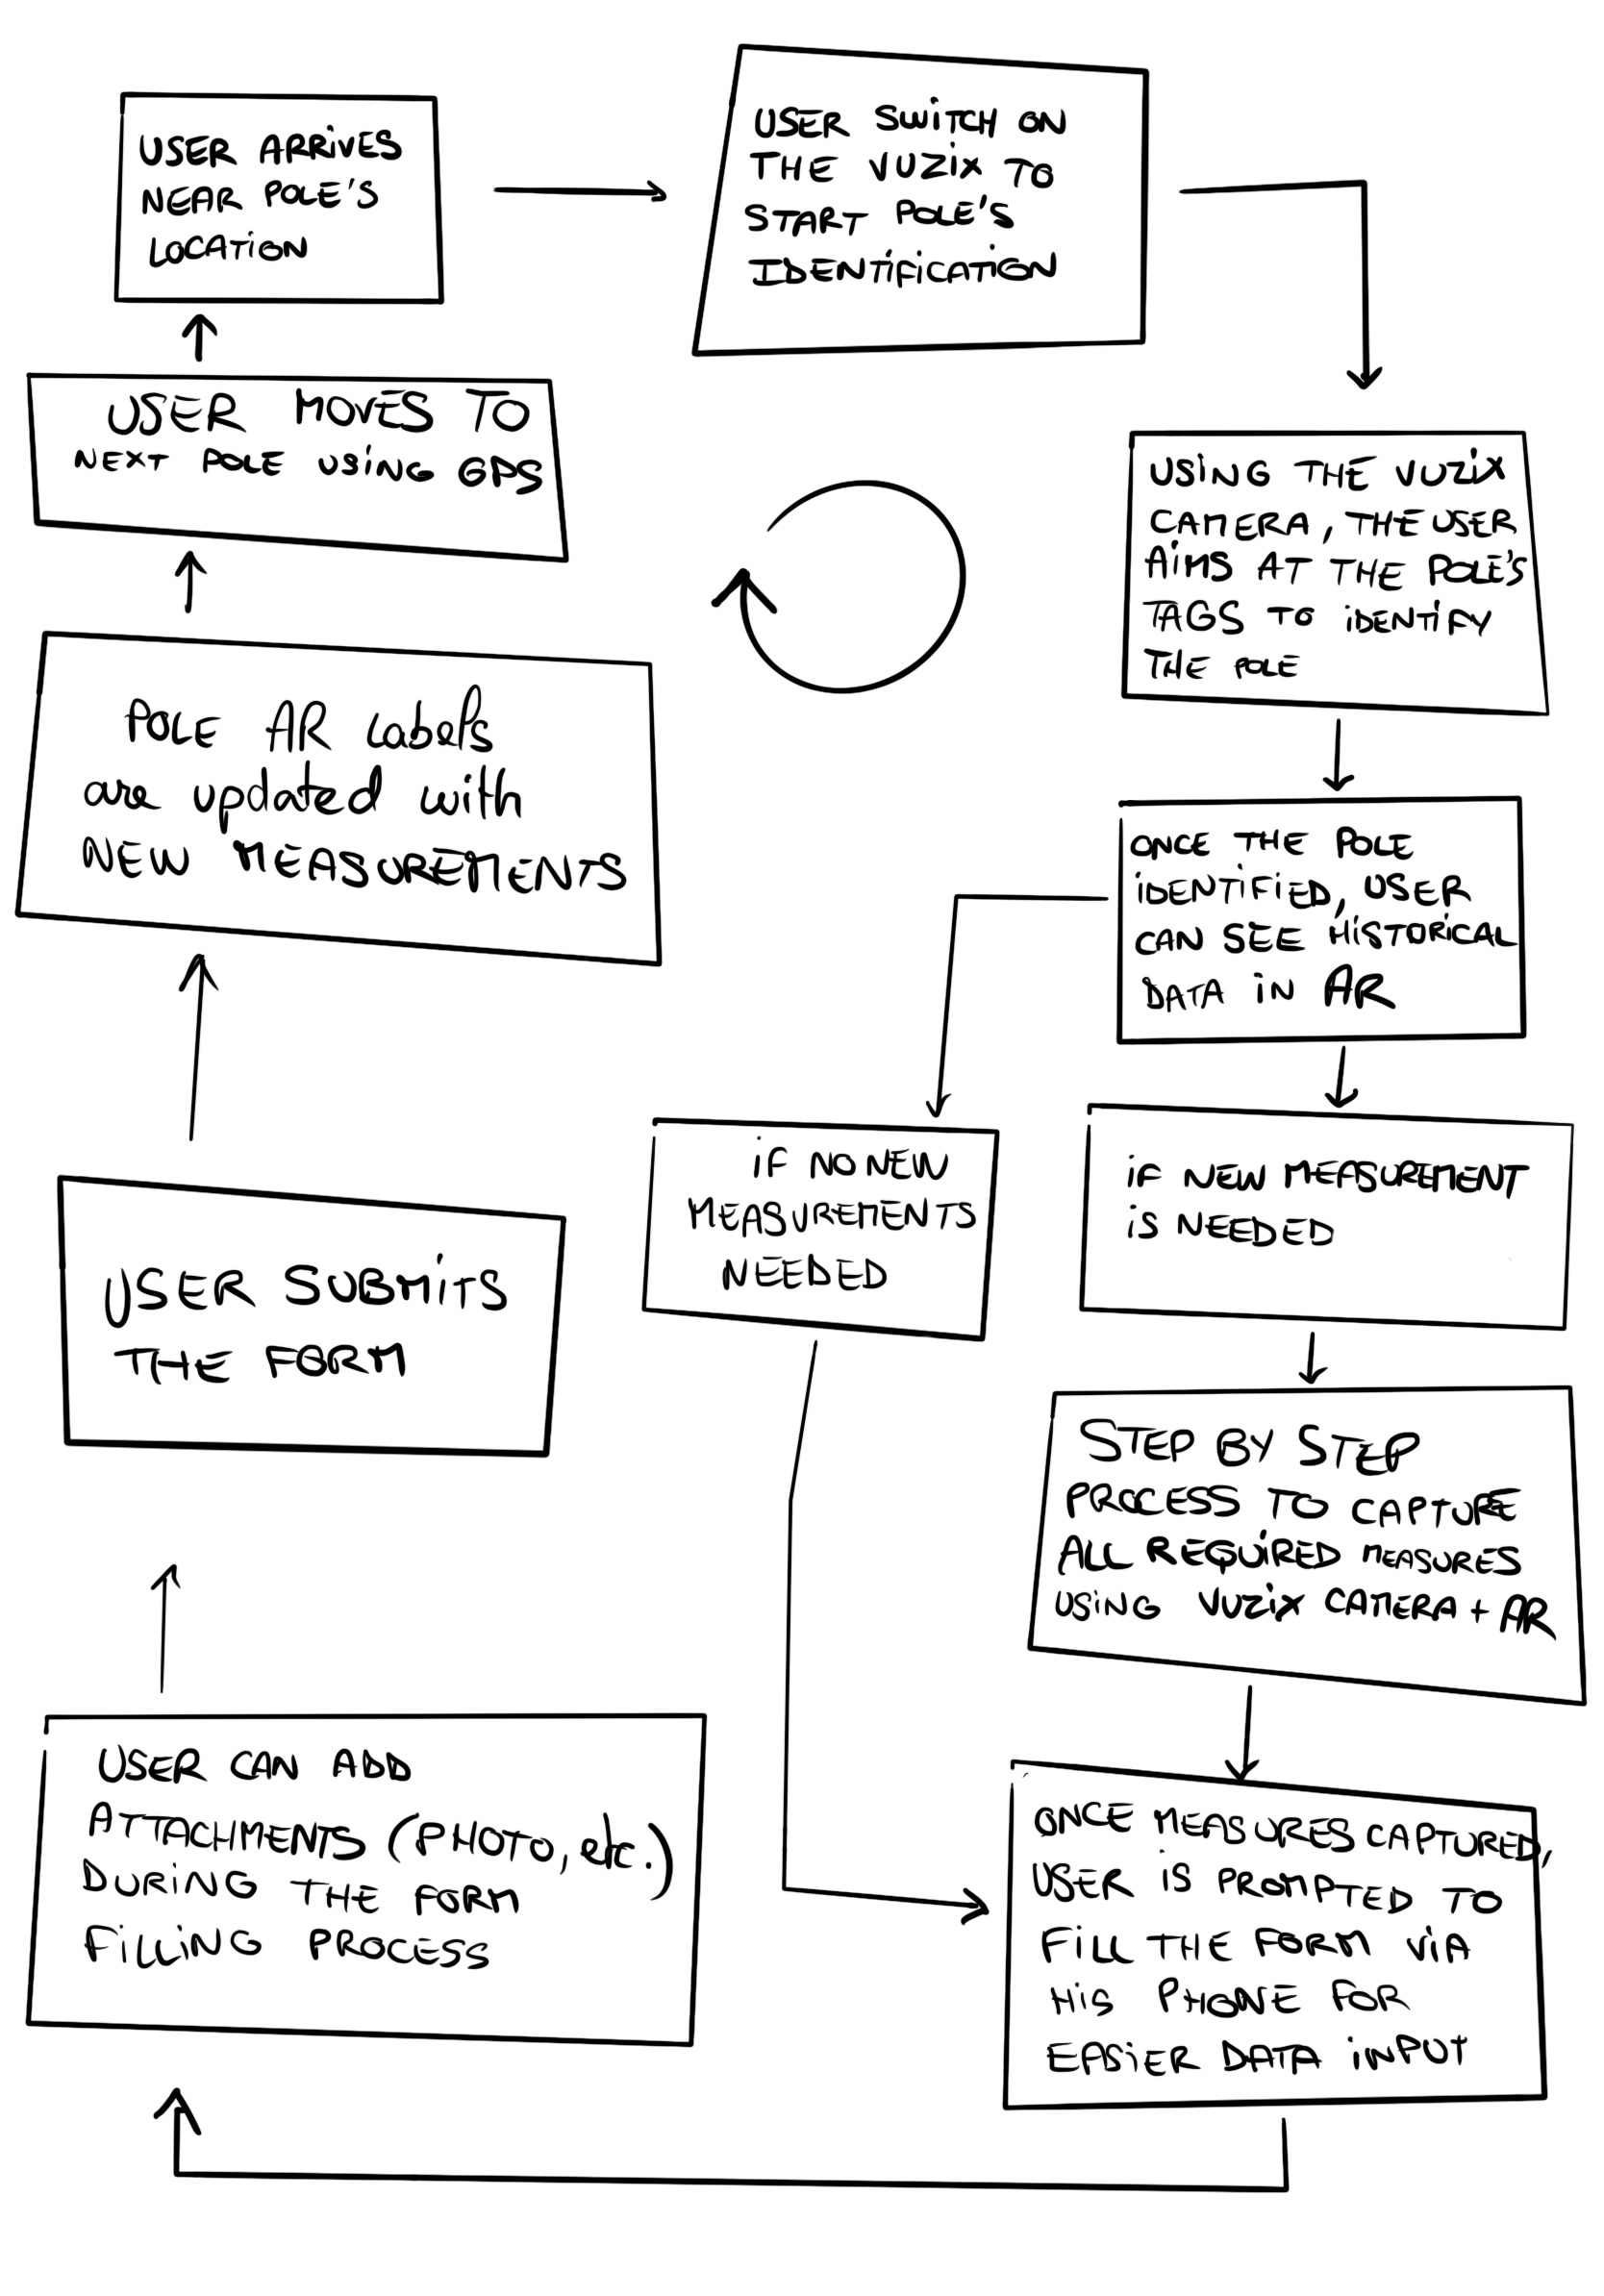 USER ARRIVES
NEAR POLE'S
LOCATION
USER SWITCH ON
THE VUZIX TO
START POLE'S
IDENTIFICATION
USING THE VUZIX
CAMERA, THE USER
AIMS AT THE POLE'S
TAGS TO IDENTIFY
THE POLE
ONCE THE POLE
IDENTIFIED, USER
CAN SEE HISTORICAL
DATA IN AR
IF NO NEW
MEASUREMENTS
NEEDED
IF NEW MEASUREMENT
IS NEEDED
STEP BY STEP
PROCESS TO CAPTURE
ALL REQUIRED MEASURES
USING VUZIX CAMERA + AR
ONCE MEASURES CAPTURED,
USER IS PROMPTED TO
FILL THE FORM VIA
HIS PHONE FOR
EASIER DATA INPUT
USER CAN ADD
ATTACHMENTS (PHOTO, etc.)
DURING THE FORM
FILLING PROCESS
USER SUBMITS
THE FORM
POLE AR Labels
are updated with
NEW MEASUREMENTS
USER MOVES TO
NEXT POLE USING GPS